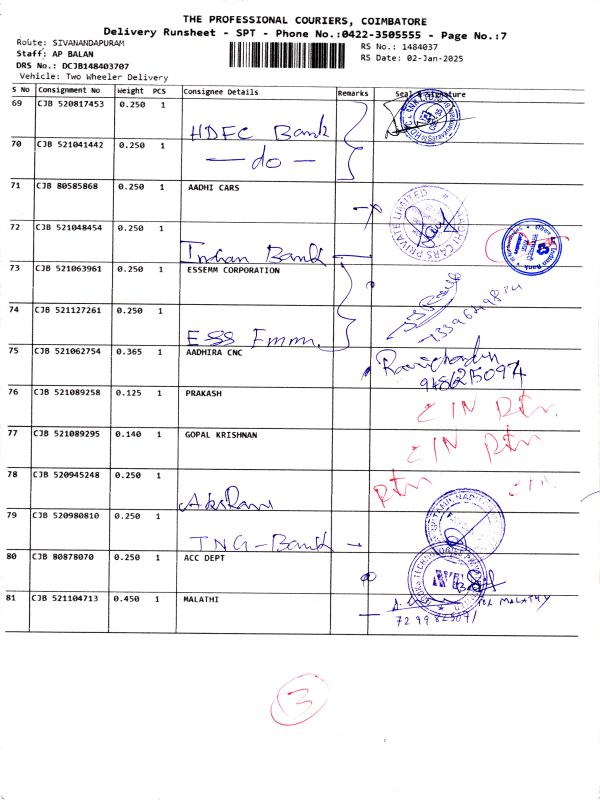 THE PROFESSIONAL COURIERS, COIMBATORE
Delivery Runsheet - SPT - Phone No.:0422-3505555 - Page No.:7
Route: SIVANANDAPURAM
Staff: AP BALAN
DRS No.: DCJB148403707
Vehicle: Two Wheeler Delivery
RS No.: 1484037
RS Date: 02-Jan-2025
S No Consignment No Weight PCS Consignee Details Remarks Seal & Signature
69 CJB 520817453 0.250 1
HDFC Bank
70 CJB 521041442 0.250 1
— do —
71 CJB 80585868 0.250 1 AADHI CARS
AADHI CARS PRIVATE LIMITED
72 CJB 521048454 0.250 1
Indian Bank
73 CJB 521063961 0.250 1 ESSEMM CORPORATION
74 CJB 521127261 0.250 1
ESS Emm.
75 CJB 521062754 0.365 1 AADHIRA CNC
Ravichandran
9486215097
76 CJB 521089258 0.125 1 PRAKASH
C/N Rtn
77 CJB 521089295 0.140 1 GOPAL KRISHNAN
C/N Rtn
78 CJB 520945248 0.250 1
Rtn C/N
79 CJB 520980810 0.250 1
TNG-Bank
80 CJB 80878070 0.250 1 ACC DEPT
81 CJB 521104713 0.450 1 MALATHI
FOR MALATHY
7299825071
3